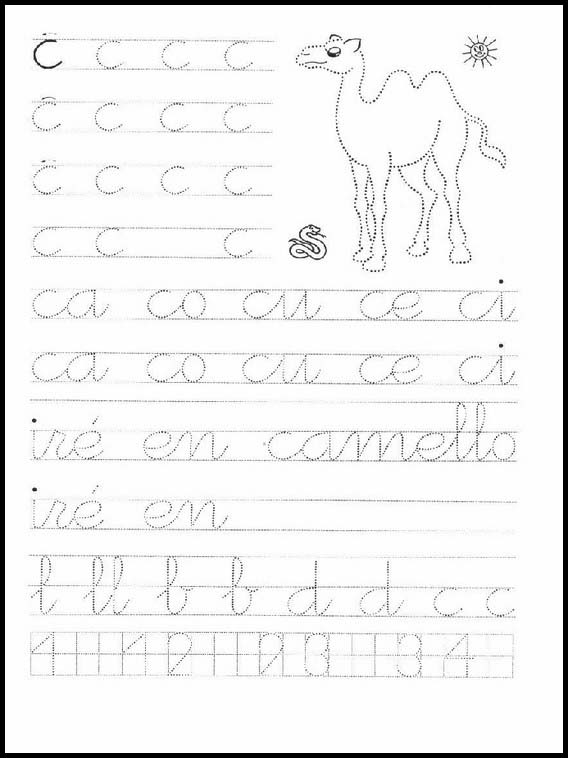 c c c c
c c c c
c c c c
c c c
ca co cu ce ci
ca co cu ce ci
iré en camello
iré en
l ll b b d d c c
1 1 2 2 3 3 4